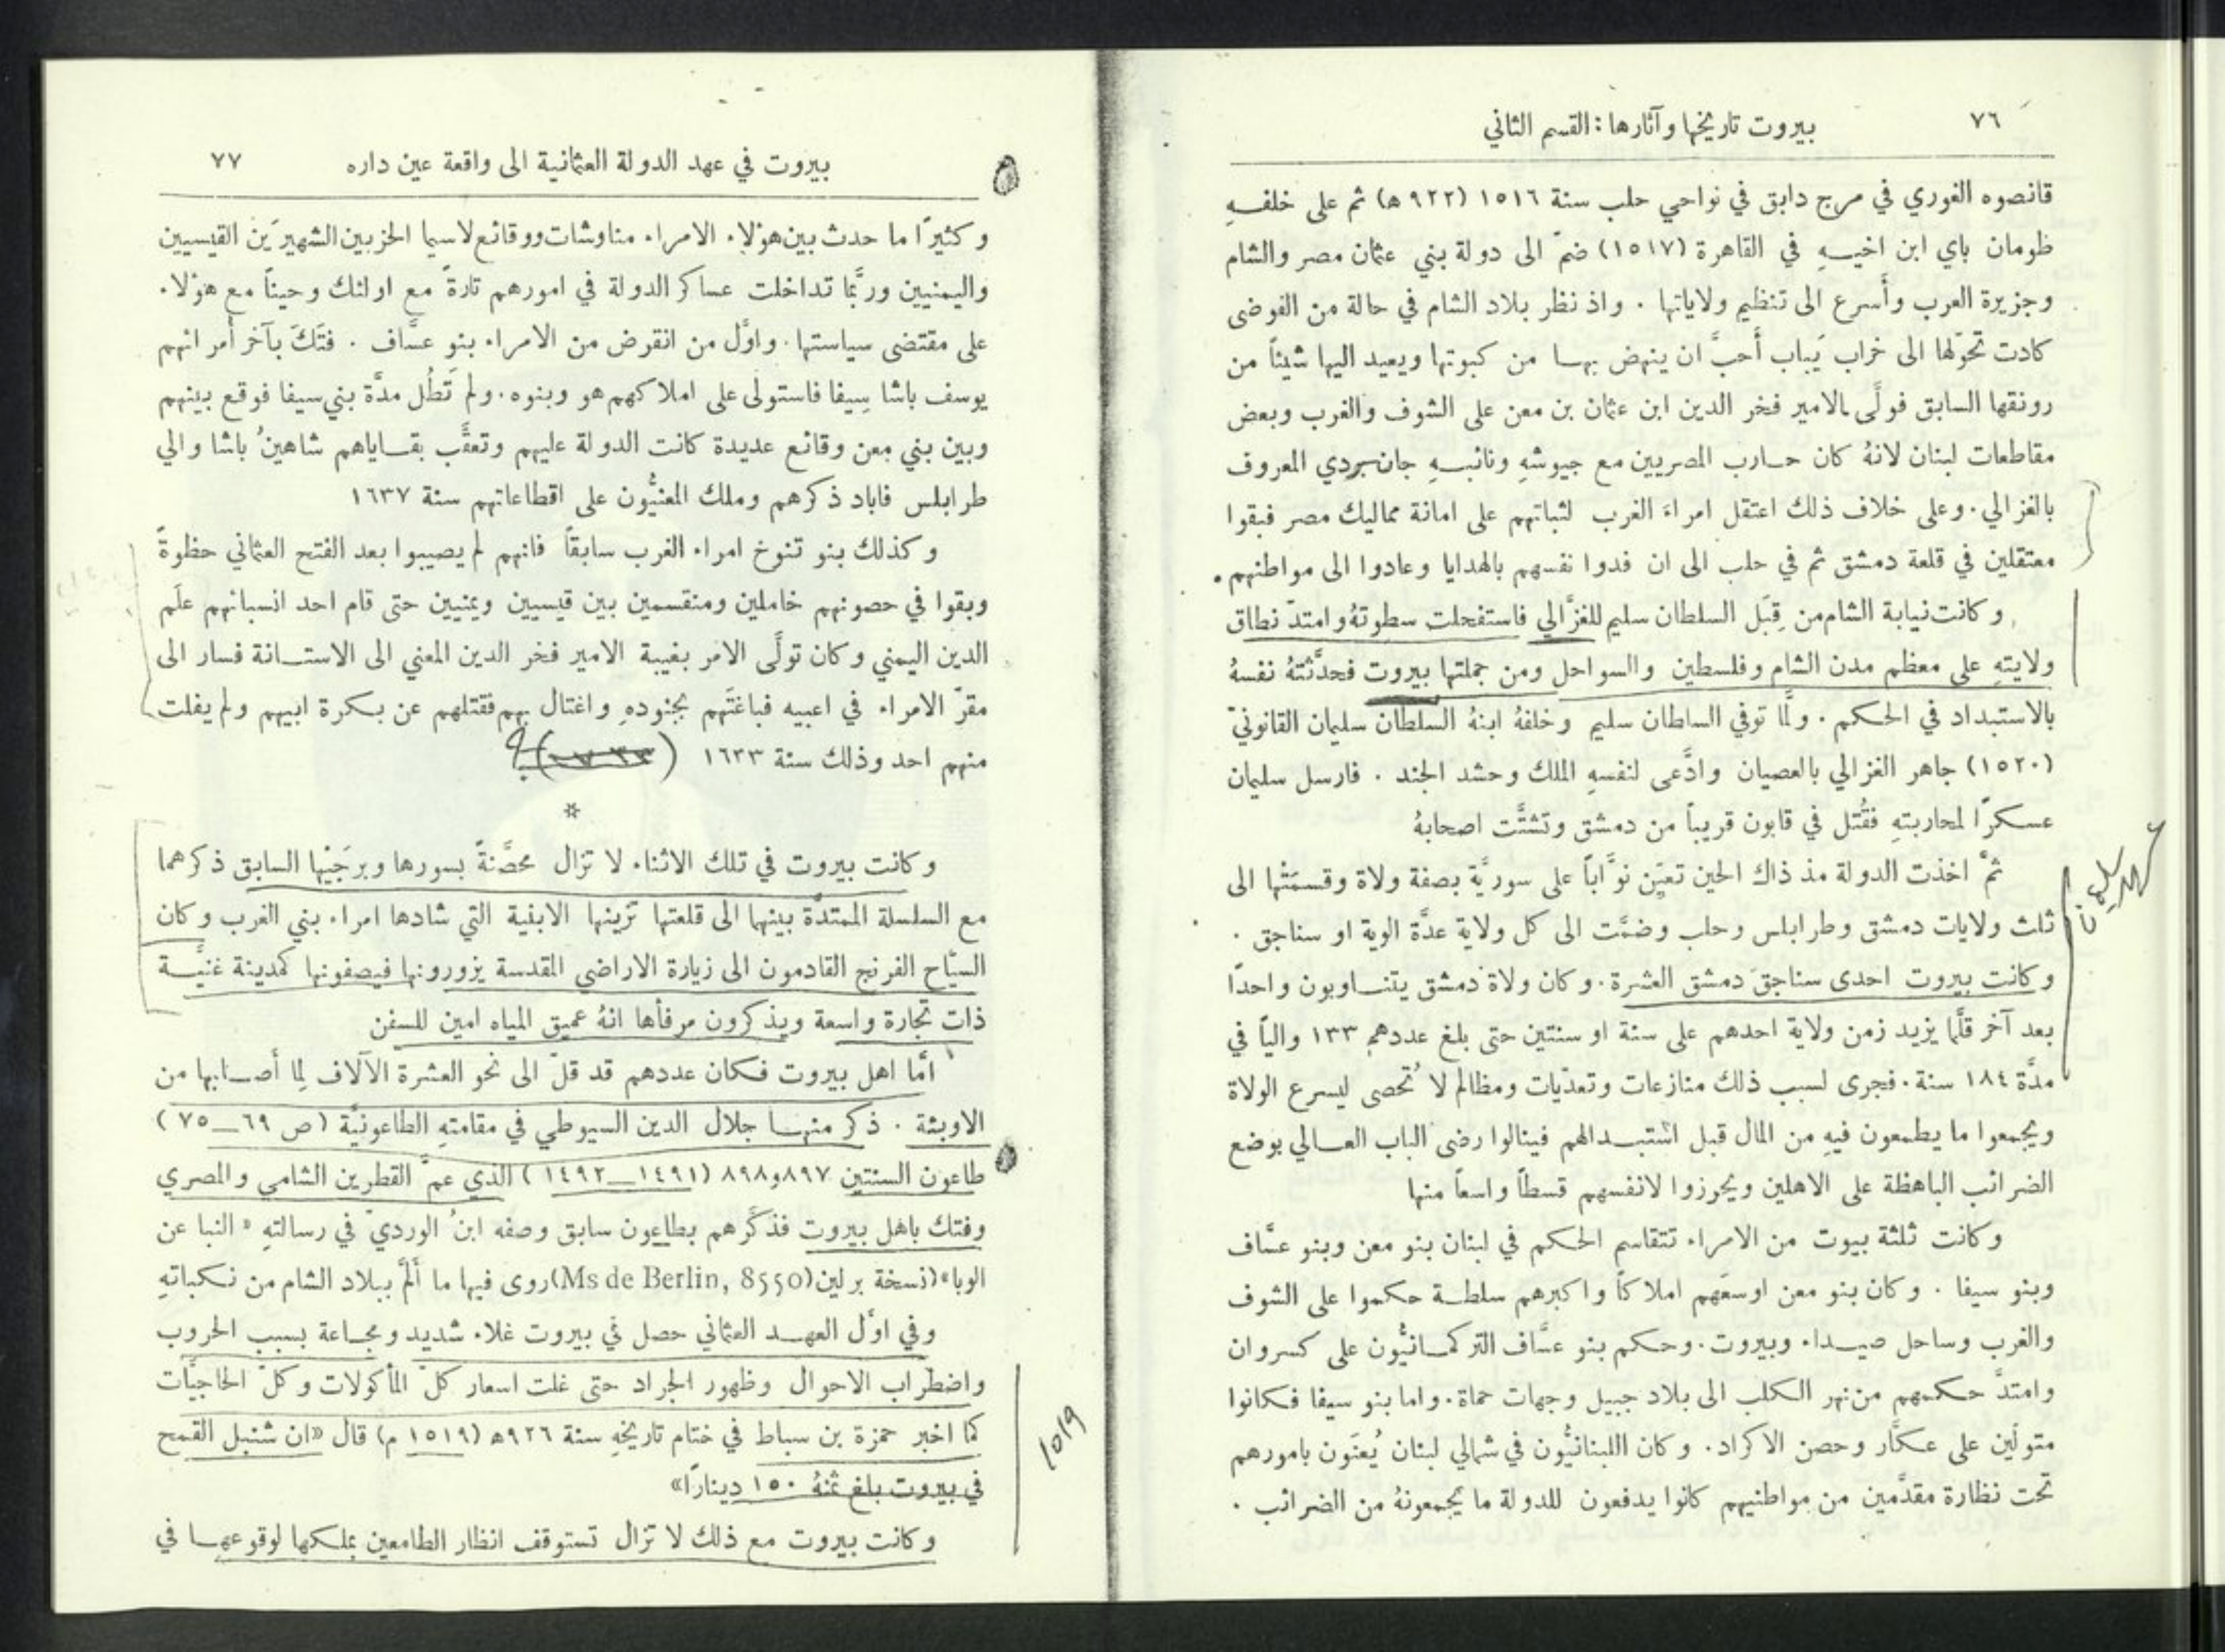 ٧٦
بيروت تاريخها وآثارها : القسم الثاني
قانصوه الغوري في مرج دابق في نواحي حلب سنة ١٥١٦ (٩٢٢ ه) ثم على خلفهِ
طومان باي ابن اخيهِ في القاهرة (١٥١٧) ضمّ الى دولة بني عثمان مصر والشام
وجزيرة العرب وأسرع الى تنظيم ولاياتها . واذ نظر بلاد الشام في حالة من الفوضى
كادت تحوّلها الى خراب يَباب أَحبَّ ان ينهض بها من كبوتها ويعيد اليها شيئاً من
رونقها السابق فولَّى الامير فخر الدين ابن عثمان بن معن على الشوف والغرب وبعض
مقاطعات لبنان لانهُ كان حارب المصريين مع جيوشهِ ونائبهِ جان بردي المعروف
بالغزالي . وعلى خلاف ذلك اعتقل امراء الغرب لثباتهم على امانة مماليك مصر فبقوا
معتقلين في قلعة دمشق ثم في حلب الى ان فدوا نفسهم بالهدايا وعادوا الى مواطنهم .
وكانت نيابة الشام من قِبَل السلطان سليم للغزَّالي فاستفحلت سطوتهُ وامتدّ نطاق
ولايتهِ على معظم مدن الشام وفلسطين والسواحل ومن جملتها بيروت فحدَّثتهُ نفسهُ
بالاستبداد في الحكم . ولمَّا توفي السلطان سليم وخلفهُ ابنهُ السلطان سليمان القانونيّ
(١٥٢٠) جاهر الغزالي بالعصيان وادَّعى لنفسهِ الملك وحشد الجند . فارسل سليمان
عسكرًا لمحاربتهِ فقُتل في قابون قريباً من دمشق وتشتَّت اصحابهُ
ثمَّ اخذت الدولة مذ ذاك الحين تعيّن نوَّاباً على سوريَّة بصفة ولاة وقسمَتْها الى
ثلث ولايات دمشق وطرابلس وحلب وضمَّت الى كل ولاية عدَّة الوية او سناجق .
وكانت بيروت احدى سناجق دمشق العشرة . وكان ولاة دمشق يتناوبون واحدًا
بعد آخر قلَّما يزيد زمن ولاية احدهم على سنة او سنتين حتى بلغ عددهم ١٣٣ والياً في
مدَّة ١٨٤ سنة . فجرى لسبب ذلك منازعات وتعدّيات ومظالم لا تُحصى ليسرع الولاة
ويجمعوا ما يطمعون فيهِ من المال قبل استبدالهم فينالوا رضى الباب العالي بوضع
الضرائب الباهظة على الاهلين ويحرزوا لانفسهم قسطاً واسعاً منها
وكانت ثلثة بيوت من الامراء تتقاسم الحكم في لبنان بنو معن وبنو عسَّاف
وبنو سيفا . وكان بنو معن اوسعَهم املاكاً واكبرهم سلطة حكموا على الشوف
والغرب وساحل صيداء وبيروت . وحكم بنو عسَّاف التركمانيُّون على كسروان
وامتدَّ حكمهم من نهر الكلب الى بلاد جبيل وجهات حماة . واما بنو سيفا فكانوا
متولّين على عكَّار وحصن الاكراد . وكان اللبنانيُّون في شمالي لبنان يُعنَون بامورهم
تحت نظارة مقدَّمين من مواطنيهم كانوا يدفعون للدولة ما يجمعونهُ من الضرائب .
بيروت في عهد الدولة العثمانية الى واقعة عين داره
٧٧
وكثيرًا ما حدث بين هؤلاء الامراء مناوشات ووقائع لاسيما الحزبين الشهيرَين القيسيين
واليمنيين وربَّما تداخلت عساكر الدولة في امورهم تارةً مع اولئك وحيناً مع هؤلاء
على مقتضى سياستها . واوَّل من انقرض من الامراء بنو عسَّاف . فتَكَ بآخر أمرائهم
يوسف باشا سيفا فاستولى على املاكهم هو وبنوه . ولم تَطُل مدَّة بني سيفا فوقع بينهم
وبين بني معن وقائع عديدة كانت الدولة عليهم وتعقَّب بقاياهم شاهينُ باشا والي
طرابلس فاباد ذكرهم وملك المعنيُّون على اقطاعاتهم سنة ١٦٣٧
وكذلك بنو تنوخ امراء الغرب سابقاً فانهم لم يصيبوا بعد الفتح العثماني حظوةً
وبقوا في حصونهم خاملين ومنقسمين بين قيسيين ويمنيين حتى قام احد انسبائهم علَم
الدين اليمني وكان تولَّى الامر بغيبة الامير فخر الدين المعني الى الاستانة فسار الى
مقرّ الامراء في اعبيه فباغتَهم بجنودهِ واغتال بهم فقتلهم عن بكرة ابيهم ولم يفلت
منهم احد وذلك سنة ١٦٣٣
*
وكانت بيروت في تلك الاثناء لا تزال محصَّنةً بسورها وبرجَيْها السابق ذكرهما
مع السلسلة الممتدَّة بينهما الى قلعتها تزينها الابنية التي شادها امراء بني الغرب وكان
السيّاح الفرنج القادمون الى زيارة الاراضي المقدسة يزورونها فيصفونها كمدينة غنيَّة
ذات تجارة واسعة ويذكرون مرفأها انهُ عميق المياه امين للسفن
امَّا اهل بيروت فكان عددهم قد قلّ الى نحو العشرة الآلاف لِما أصابها من
الاوبئة . ذكر منها جلال الدين السيوطي في مقامتهِ الطاعونيَّة (ص ٦٩ـ٧٥)
طاعون السنتين ٨٩٧ و٨٩٨ (١٤٩١ـ١٤٩٢) الذي عمَّ القطرين الشامي والمصري
وفتك باهل بيروت فذكَّرهم بطاعون سابق وصفه ابنُ الورديّ في رسالتهِ « النبا عن
الوبا» (نسخة برلين (Ms de Berlin, 8550) روى فيها ما أَلمَّ ببلاد الشام من نكباتهِ
وفي اوَّل العهد العثماني حصل في بيروت غلاء شديد ومجاعة بسبب الحروب
واضطراب الاحوال وظهور الجراد حتى غلت اسعار كلّ المأكولات وكلّ الحاجيَّات
كما اخبر حمزة بن سباط في ختام تاريخهِ سنة ٩٢٦ه (١٥١٩ م) قال «ان شنبل القمح
في بيروت بلغ ثمنهُ ١٥٠ دينارًا»
١٥١٩
وكانت بيروت مع ذلك لا تزال تستوقف انظار الطامعين بملكها لوقوعها في